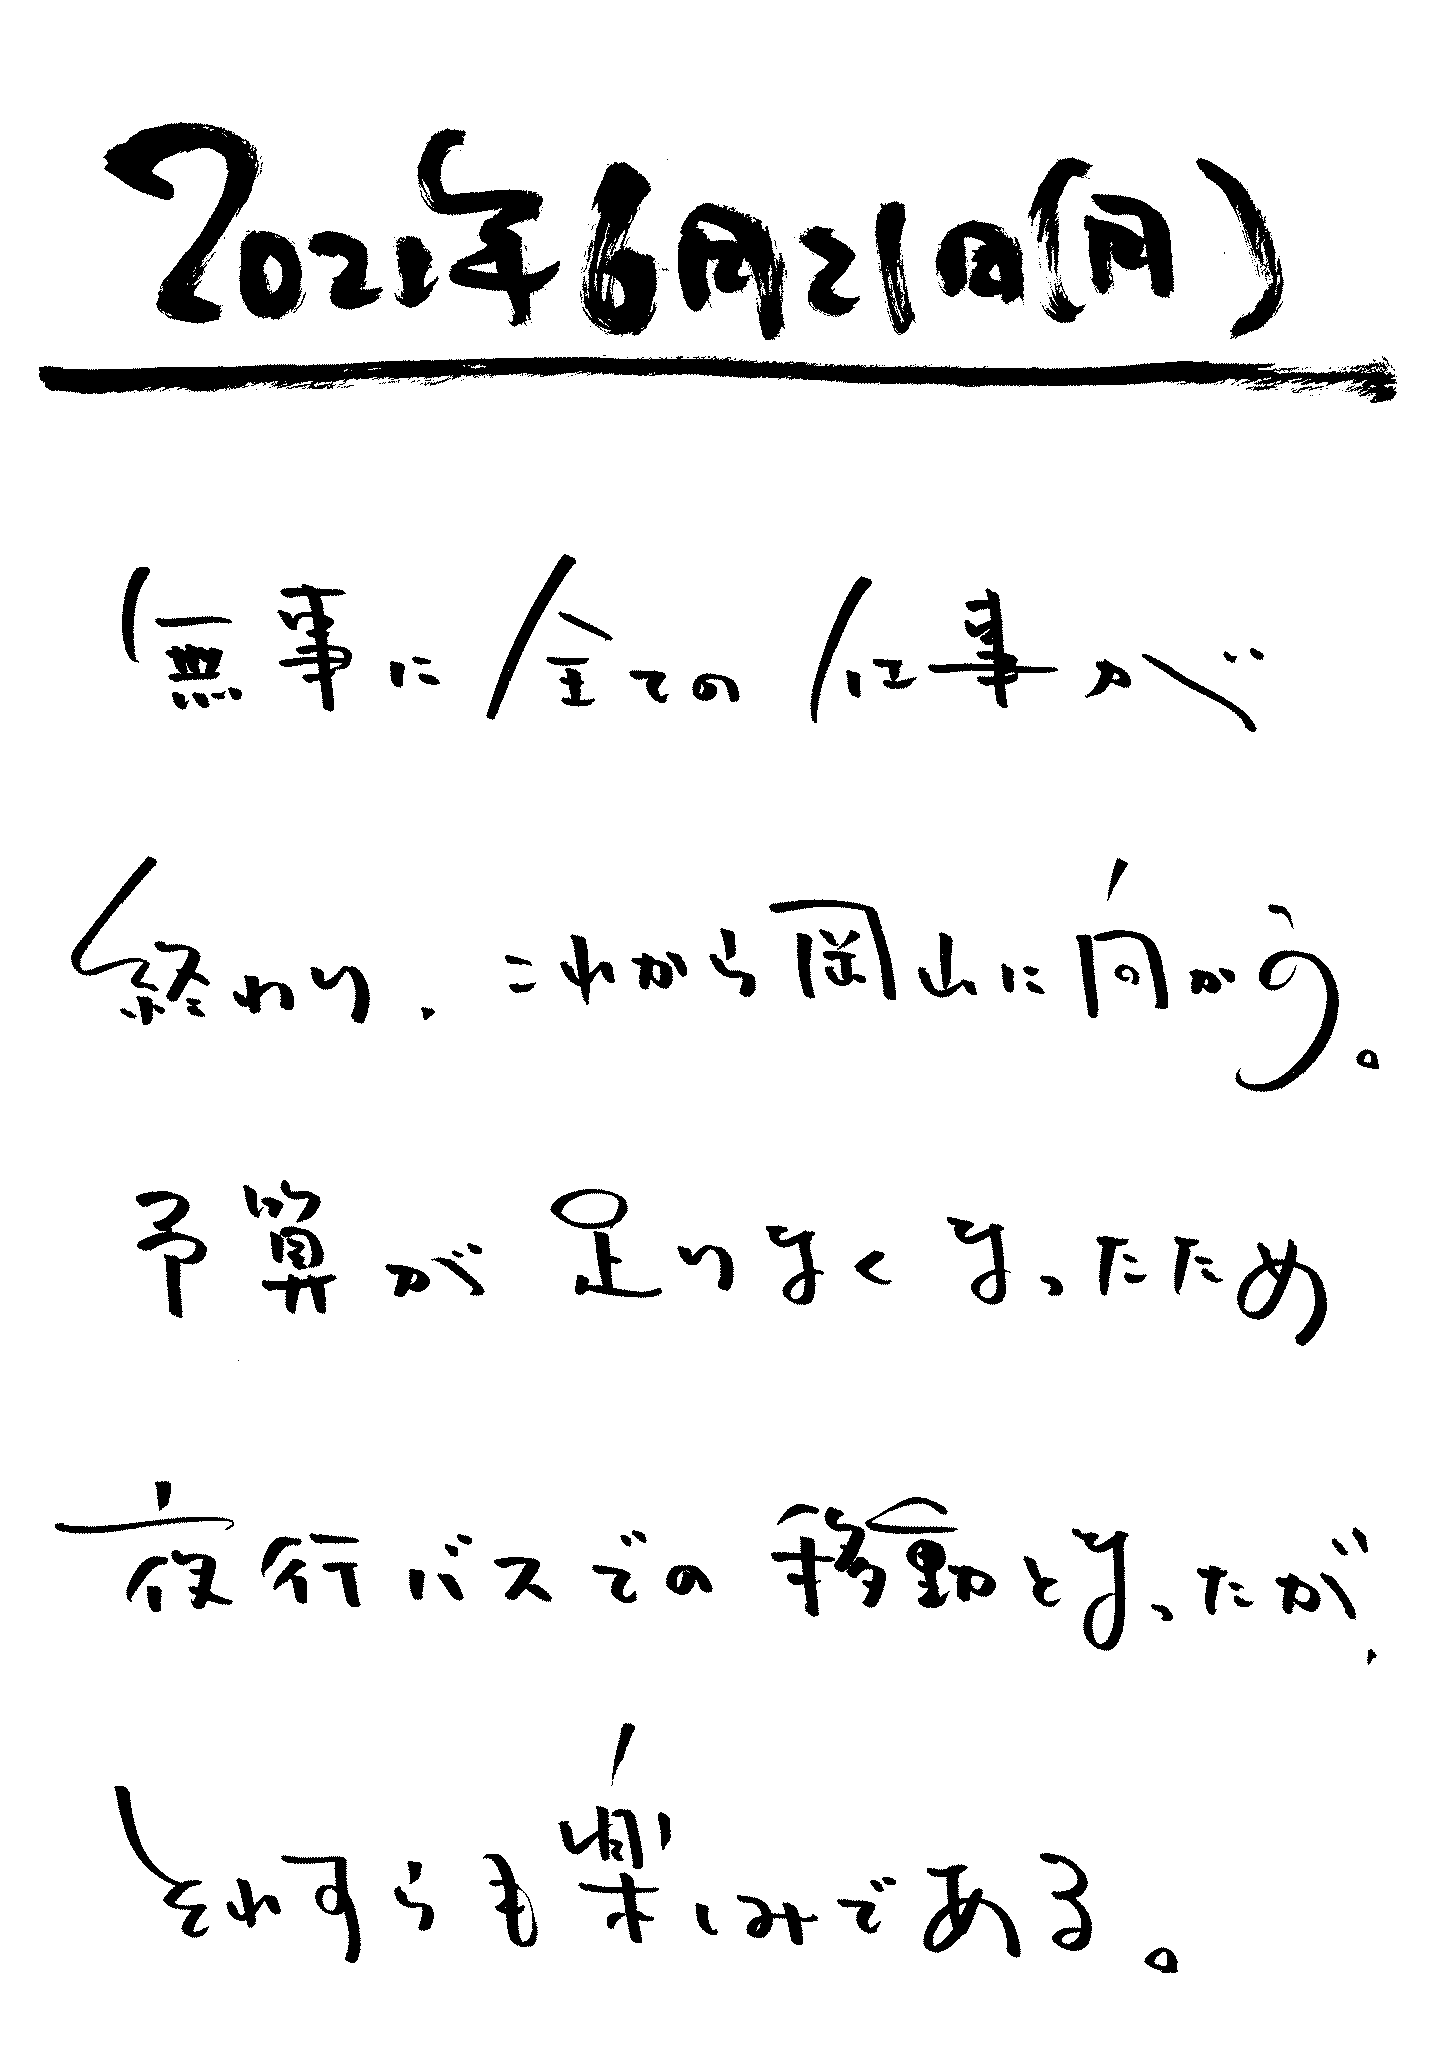 2021年6月21日(月)
無事に全ての仕事が
終わり、これから岡山に向かう。
予算が足りなくなったため
夜行バスでの移動となったが、
それすらも楽しみである。